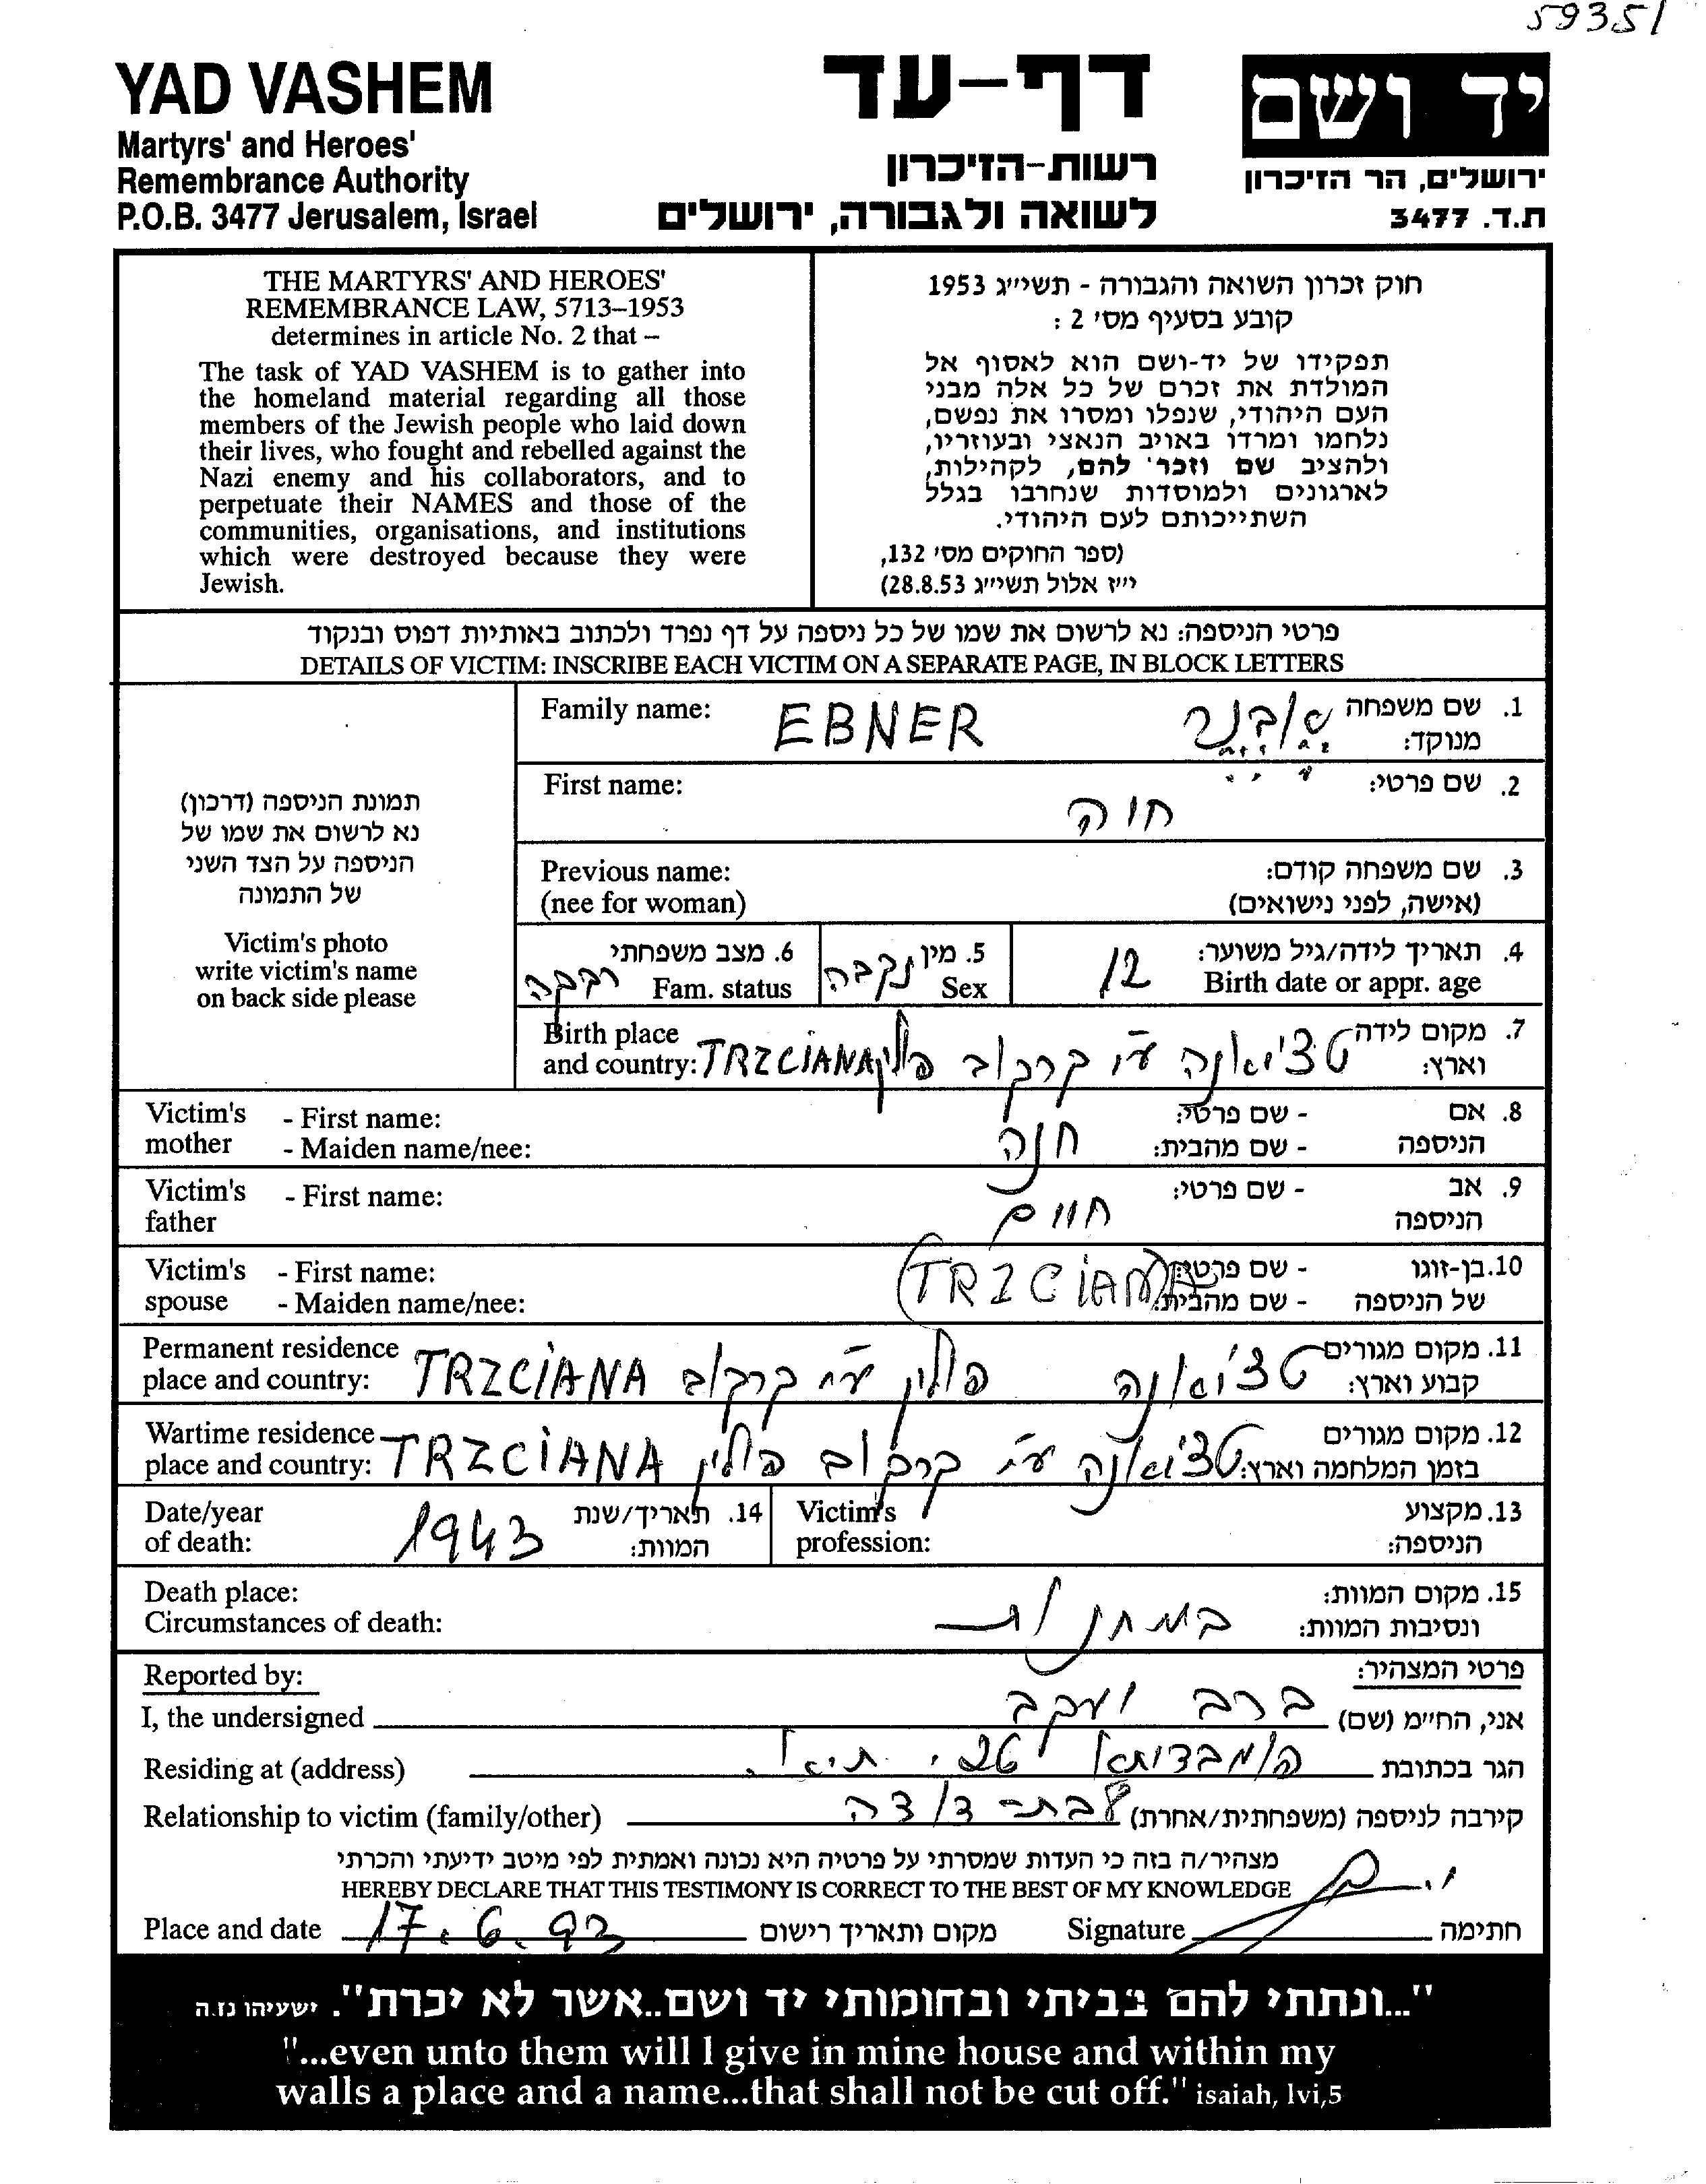 59351
YAD VASHEM
Martyrs' and Heroes'
Remembrance Authority
P.O.B. 3477 Jerusalem, Israel
דף-עד
רשות-הזיכרון
לשואה ולגבורה, ירושלים
יד ושם
ירושלים, הר הזיכרון
ת.ד. 3477
THE MARTYRS' AND HEROES'
REMEMBRANCE LAW, 5713–1953
determines in article No. 2 that –
The task of YAD VASHEM is to gather into
the homeland material regarding all those
members of the Jewish people who laid down
their lives, who fought and rebelled against the
Nazi enemy and his collaborators, and to
perpetuate their NAMES and those of the
communities, organisations, and institutions
which were destroyed because they were
Jewish.
חוק זכרון השואה והגבורה - תשי״ג 1953
קובע בסעיף מס׳ 2 :
תפקידו של יד-ושם הוא לאסוף אל
המולדת את זכרם של כל אלה מבני
העם היהודי, שנפלו ומסרו את נפשם,
נלחמו ומרדו באויב הנאצי ובעוזריו,
ולהציב שם וזכר להם, לקהילות,
לארגונים ולמוסדות שנחרבו בגלל
השתייכותם לעם היהודי.
(ספר החוקים מס׳ 132,
י״ז אלול תשי״ג 28.8.53)
פרטי הניספה: נא לרשום את שמו של כל ניספה על דף נפרד ולכתוב באותיות דפוס ובנקוד
DETAILS OF VICTIM: INSCRIBE EACH VICTIM ON A SEPARATE PAGE, IN BLOCK LETTERS
תמונת הניספה (דרכון)
נא לרשום את שמו של
הניספה על הצד השני
של התמונה
Victim's photo
write victim's name
on back side please
Family name: EBNER אבנר 1. שם משפחה
מנוקד:
First name: חוה 2. שם פרטי:
Previous name: 3. שם משפחה קודם:
(nee for woman) (אישה, לפני נישואים)
6. מצב משפחתי רווקה Fam. status
5. מין נקבה Sex
12 4. תאריך לידה/גיל משוער:
Birth date or appr. age
Birth place 7. מקום לידה
and country: TRZCIANA טצ׳יאנה ע״י קרקוב פולין וארץ:
Victim's - First name: - שם פרטי: 8. אם
mother - Maiden name/nee: חנה - שם מהבית: הניספה
Victim's - First name: - שם פרטי: 9. אב
father חיים הניספה
Victim's - First name: TRZCIANA - שם פרטי: 10. בן-זוגו
spouse - Maiden name/nee: - שם מהבית: של הניספה
Permanent residence 11. מקום מגורים
place and country: TRZCIANA טצ׳יאנה פולין ע״י קרקוב קבוע וארץ:
Wartime residence 12. מקום מגורים
place and country: TRZCIANA טצ׳יאנה ע״י קרקוב פולין בזמן המלחמה וארץ:
Date/year 14. תאריך/שנת
of death: 1943 המוות:
Victim's 13. מקצוע
profession: הניספה:
Death place: 15. מקום המוות:
Circumstances of death: במחנות ונסיבות המוות:
Reported by: פרטי המצהיר:
I, the undersigned ברב יעקב אני, החי״מ (שם)
Residing at (address) 26 הגר בכתובת
Relationship to victim (family/other) בת-דודה קירבה לניספה (משפחתית/אחרת)
מצהיר/ה בזה כי העדות שמסרתי על פרטיה היא נכונה ואמתית לפי מיטב ידיעתי והכרתי
HEREBY DECLARE THAT THIS TESTIMONY IS CORRECT TO THE BEST OF MY KNOWLEDGE
Place and date 17.6.93 מקום ותאריך רישום Signature חתימה
"...ונתתי להם בביתי ובחומותי יד ושם..אשר לא יכרת". ישעיהו נז.ה
"...even unto them will I give in mine house and within my
walls a place and a name...that shall not be cut off." isaiah, lvi,5